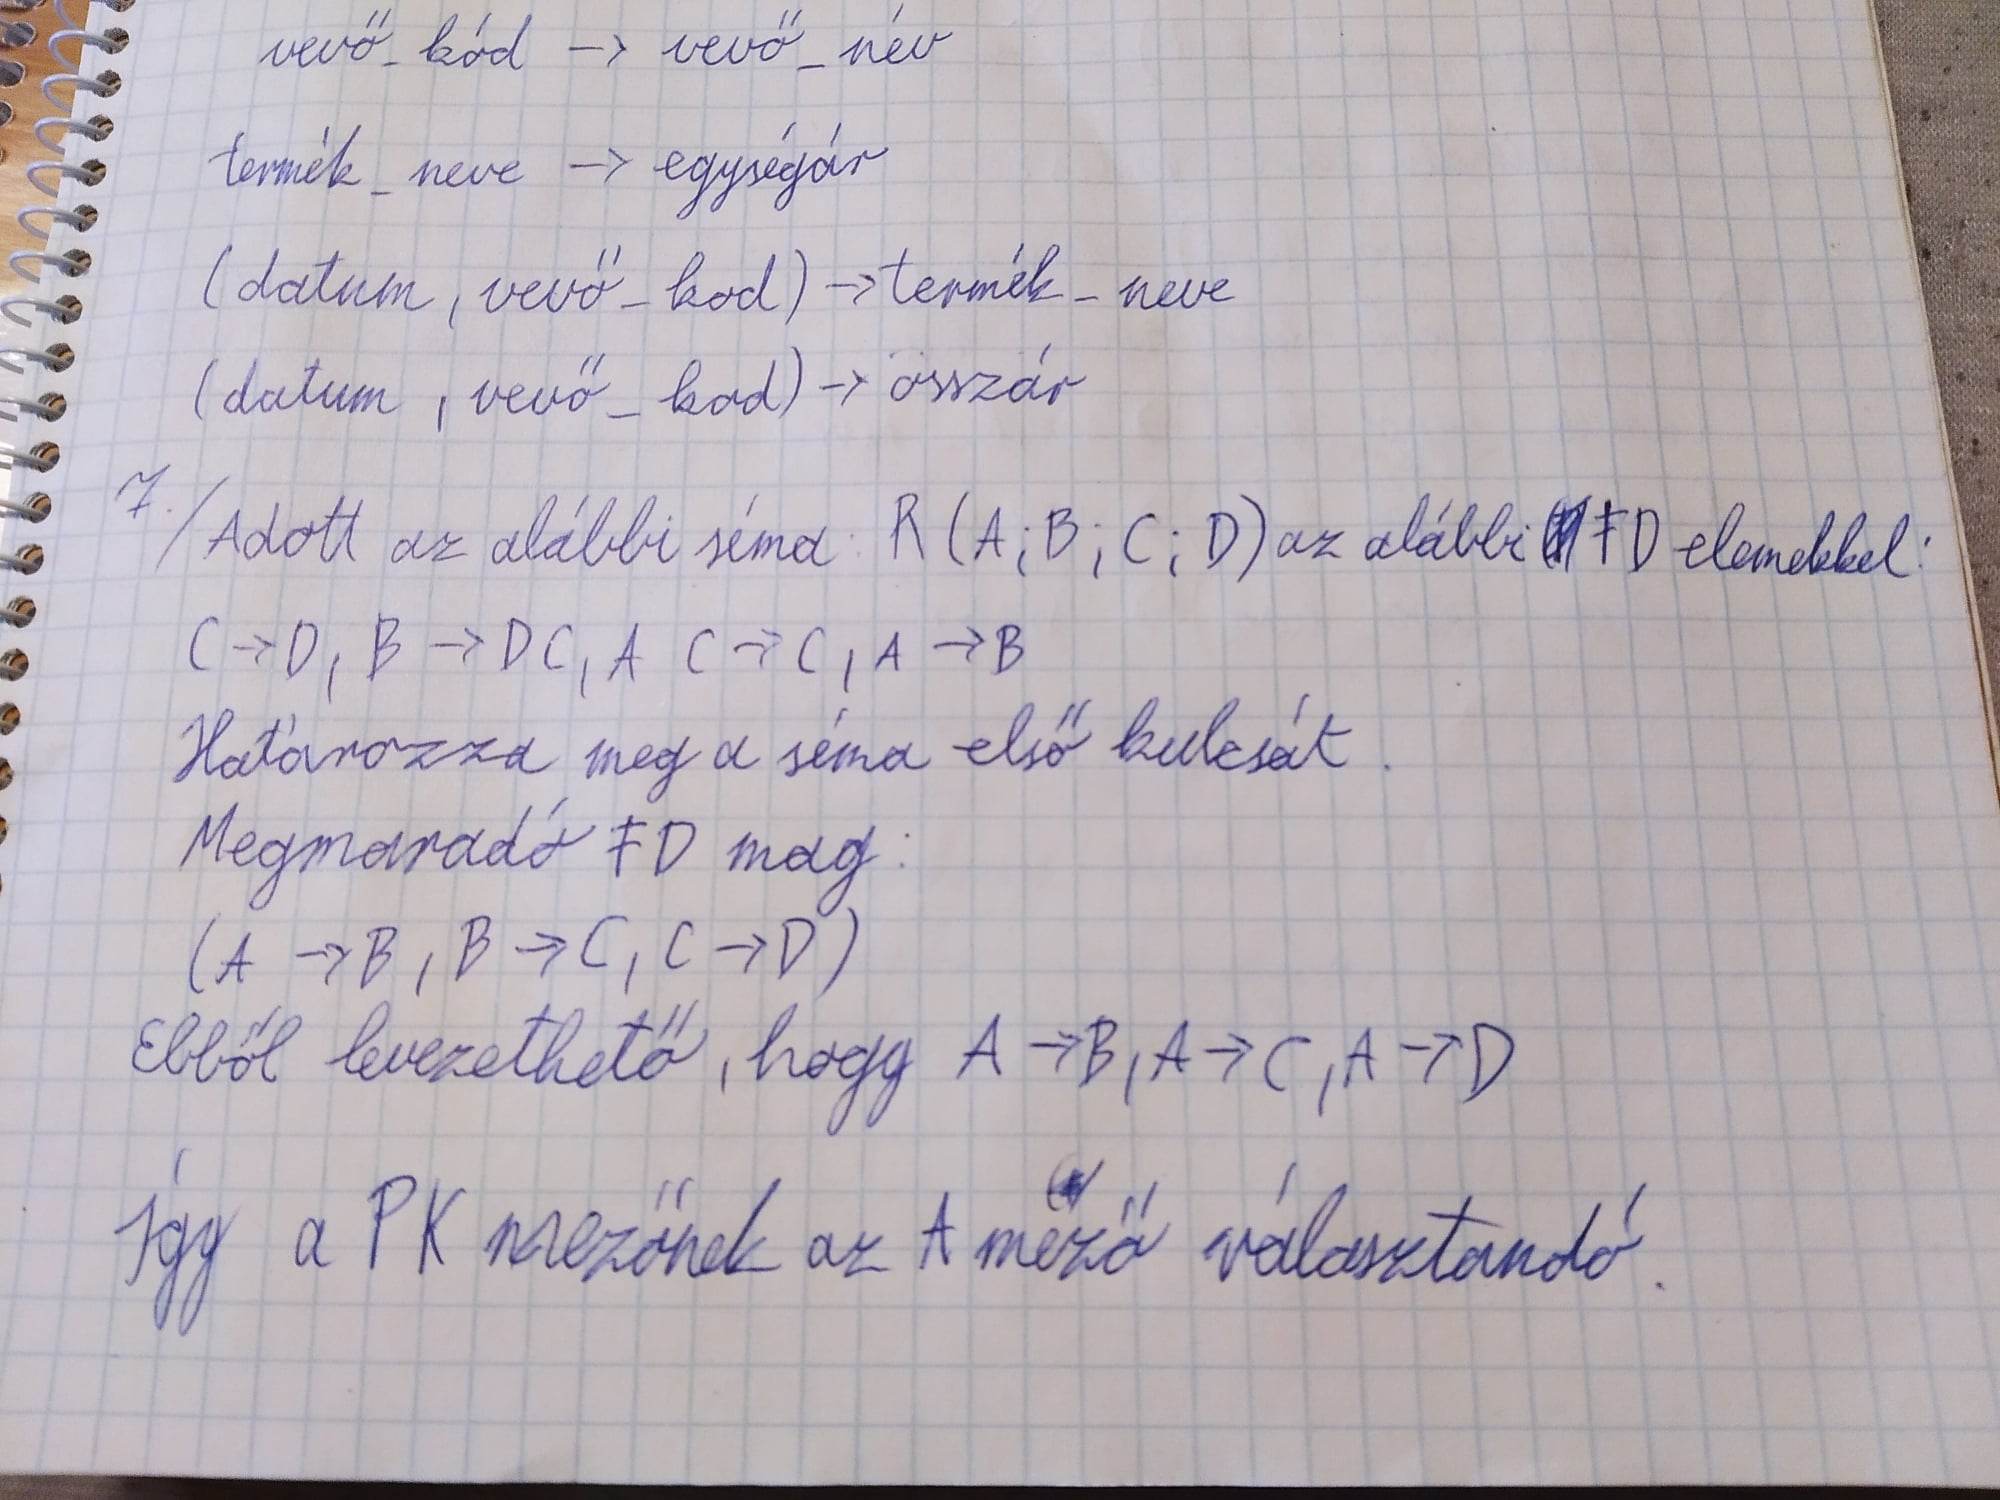 vevő_kód → vevő_név
termék_neve → egységár
(datum, vevő_kod) → termék_neve
(datum, vevő_kod) → összár
7./Adott az alábbi séma: R(A;B;C;D) az alábbi FD elemekkel:
C→D, B→DC, A C→C, A→B
Határozza meg a séma első kulcsát.
Megmaradó FD mag:
(A→B, B→C, C→D)
Ebből levezethető, hogy A→B, A→C, A→D
Így a PK mezőnek az A mező választandó.